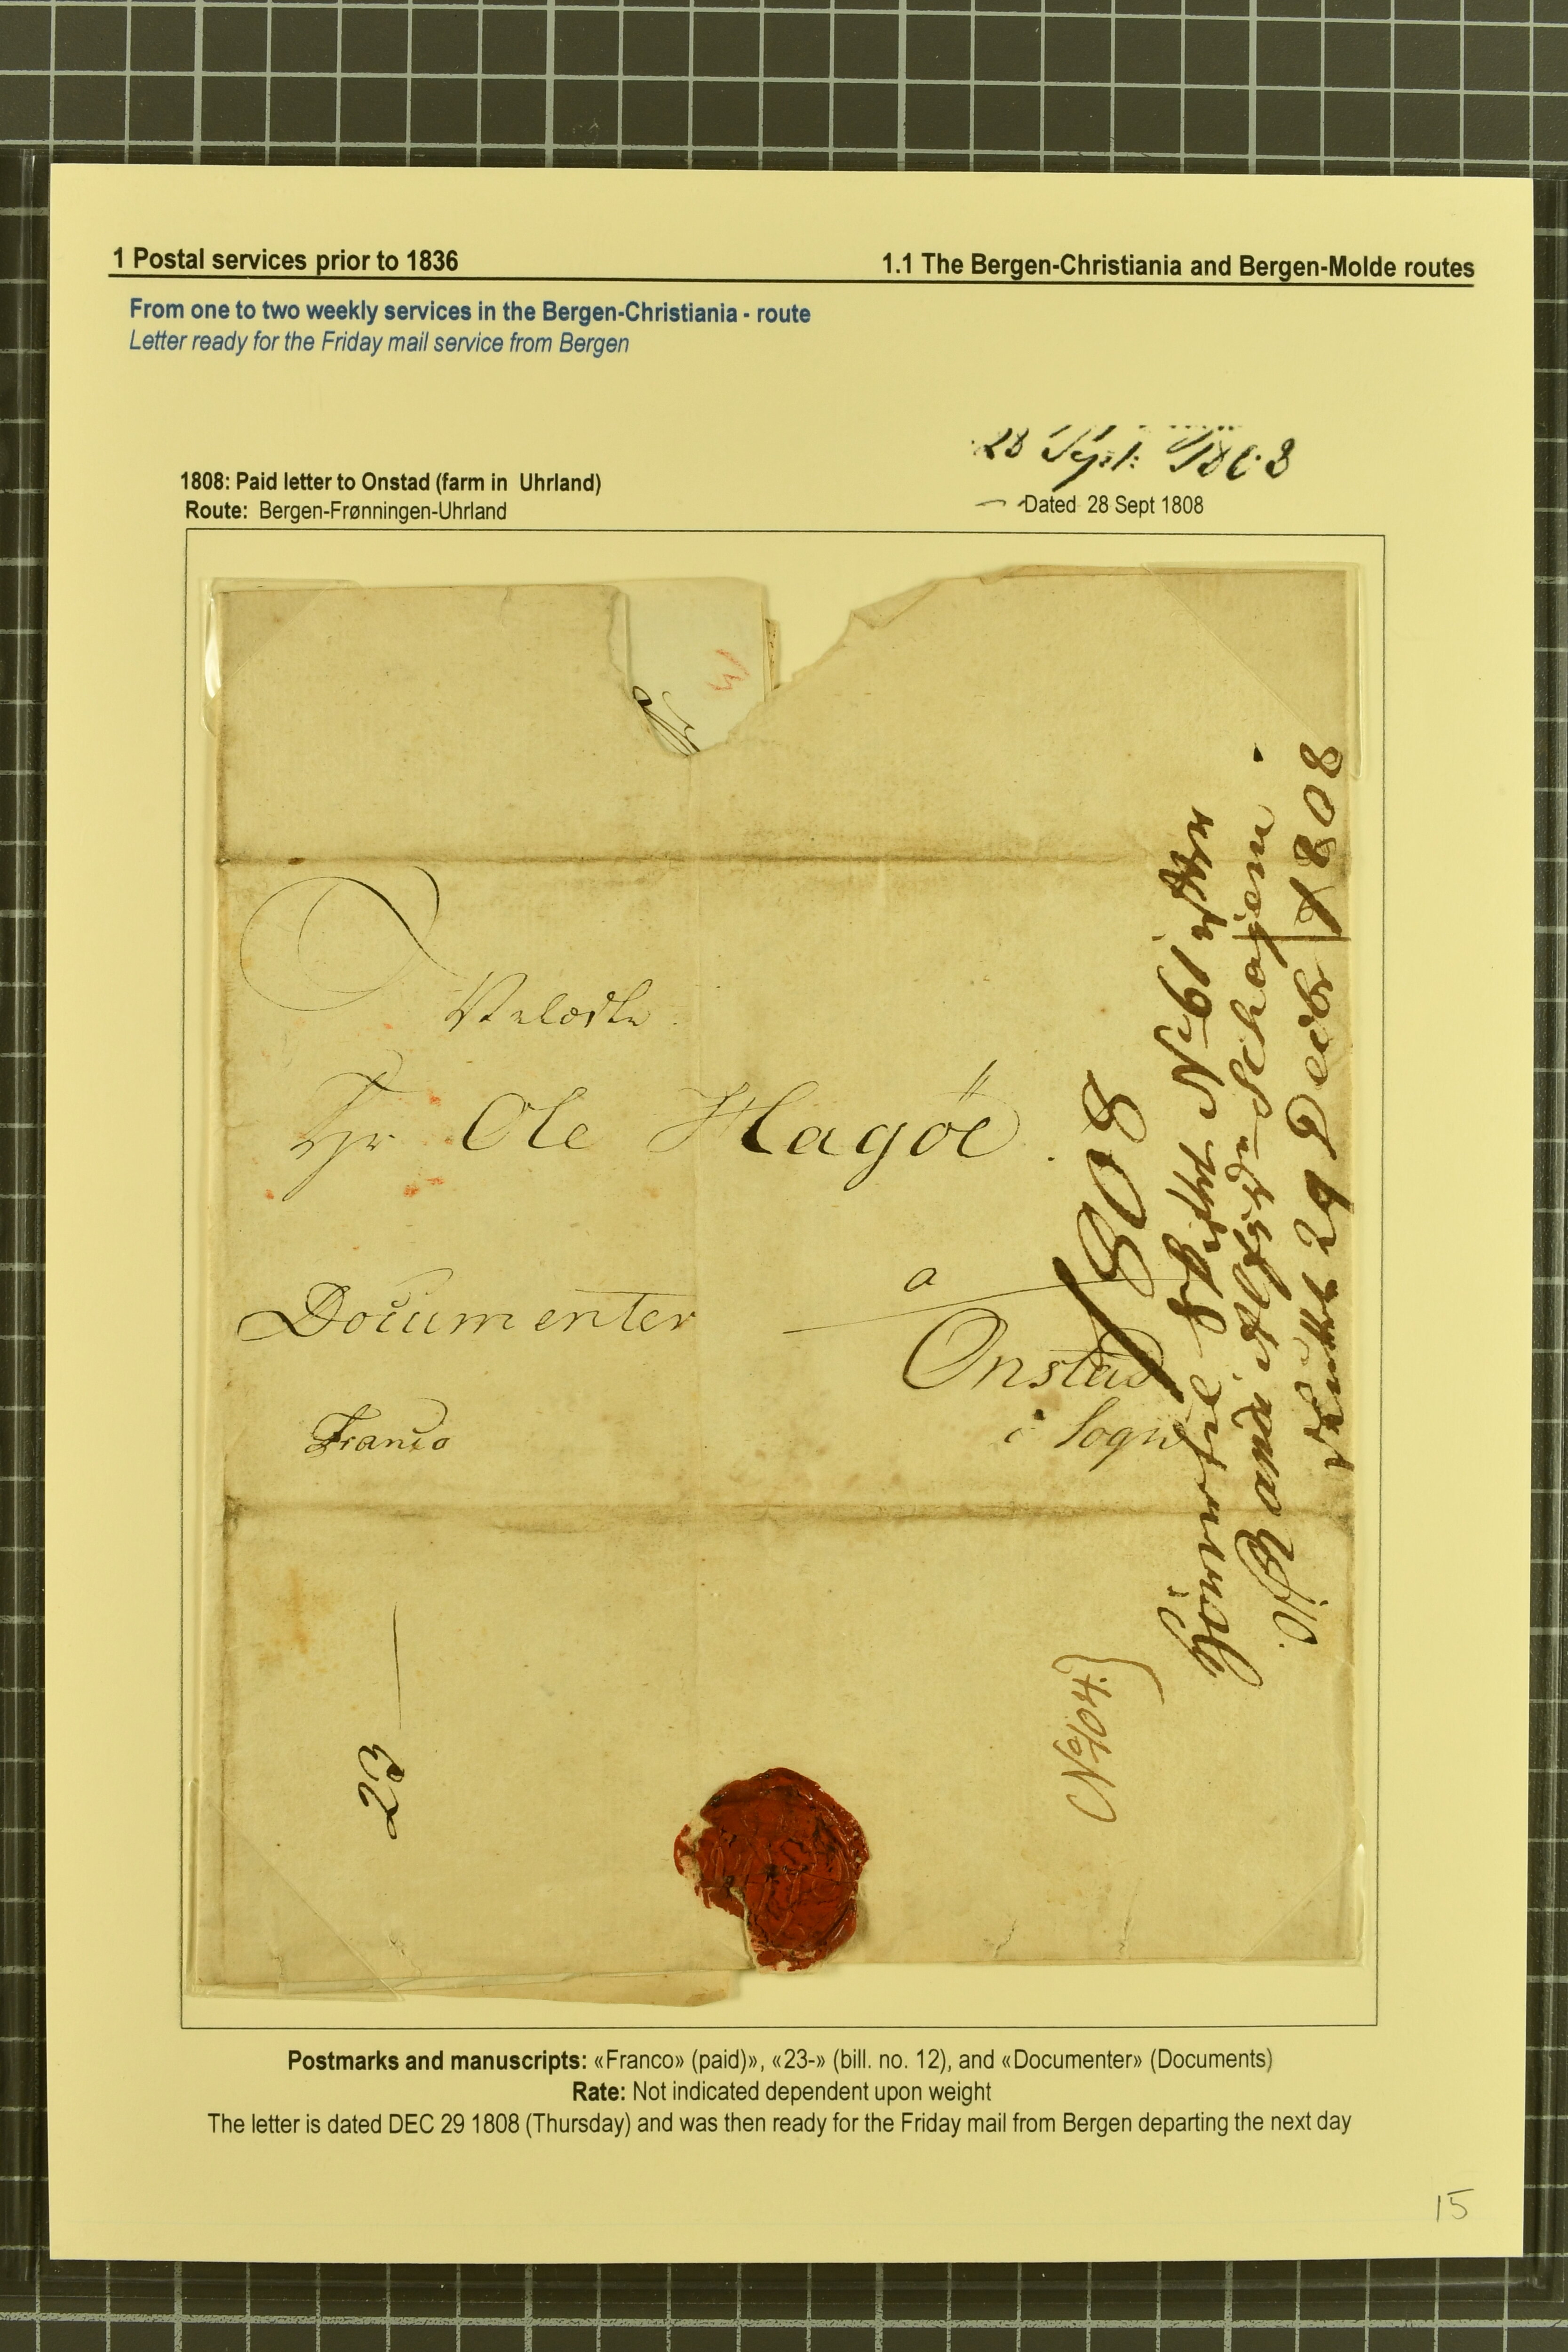 1 Postal services prior to 1836
1.1 The Bergen-Christiania and Bergen-Molde routes
From one to two weekly services in the Bergen-Christiania - route
Letter ready for the Friday mail service from Bergen
28 Sept: 1808
1808: Paid letter to Onstad (farm in Uhrland)
Route: Bergen-Frønningen-Uhrland
Dated 28 Sept 1808
3
Hr Ole Hagöe
Documenter
a
Onstad
i Sogn
Franco
23
1808
No 61
29 Decbr 1808
Postmarks and manuscripts: «Franco» (paid)», «23-» (bill. no. 12), and «Documenter» (Documents)
Rate: Not indicated dependent upon weight
The letter is dated DEC 29 1808 (Thursday) and was then ready for the Friday mail from Bergen departing the next day
15